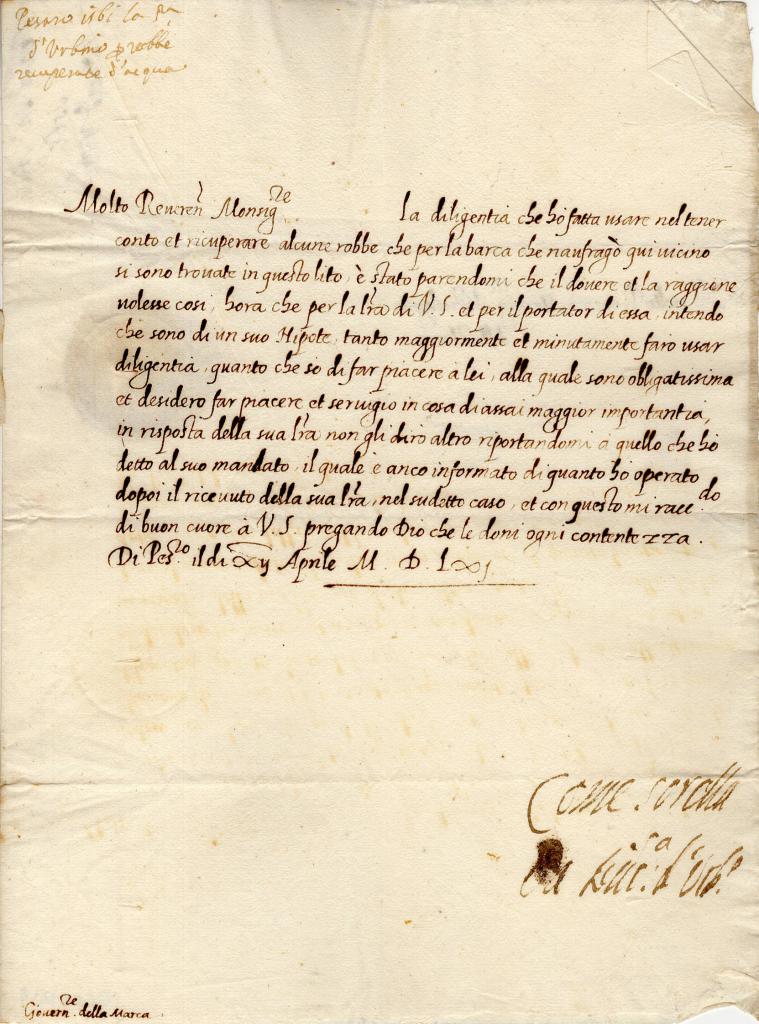 Pesaro 1561 la Sra
d'Urbino p robbe
recuperate d'acqua
Molto Reveren Monsigre La diligentia che hò fatta usare nel tener
conto et ricuperare alcune robbe che per la barca che naufragò qui vicino
si sono trovate in questo lito, è stato parendomi che il dovere et la raggione
volesse cosi, hora che per la lra di V. S. et per il portator di essa, intendo
che sono di un suo Nipote, tanto maggiormente et minutamente faro usar
diligentia, quanto che sò di far piacere à lei, alla quale sono obligatissima
et desidero far piacere et servigio in cosa di assai maggior importantia,
in risposta della sua lra non gli dirò altro riportandomi à quello che hò
detto al suo mandato, il quale è anco informato di quanto hò operato
dopoi il ricevuto della sua lra, nel sudetto caso, et con questo mi raccdo
di buon cuore à V. S. pregando Dio che le doni ogni contentezza.
Di Pesro il di xij Aprile M. D. Lxj
Come sorella
La Ducsa d'Urbo
Governre della Marca